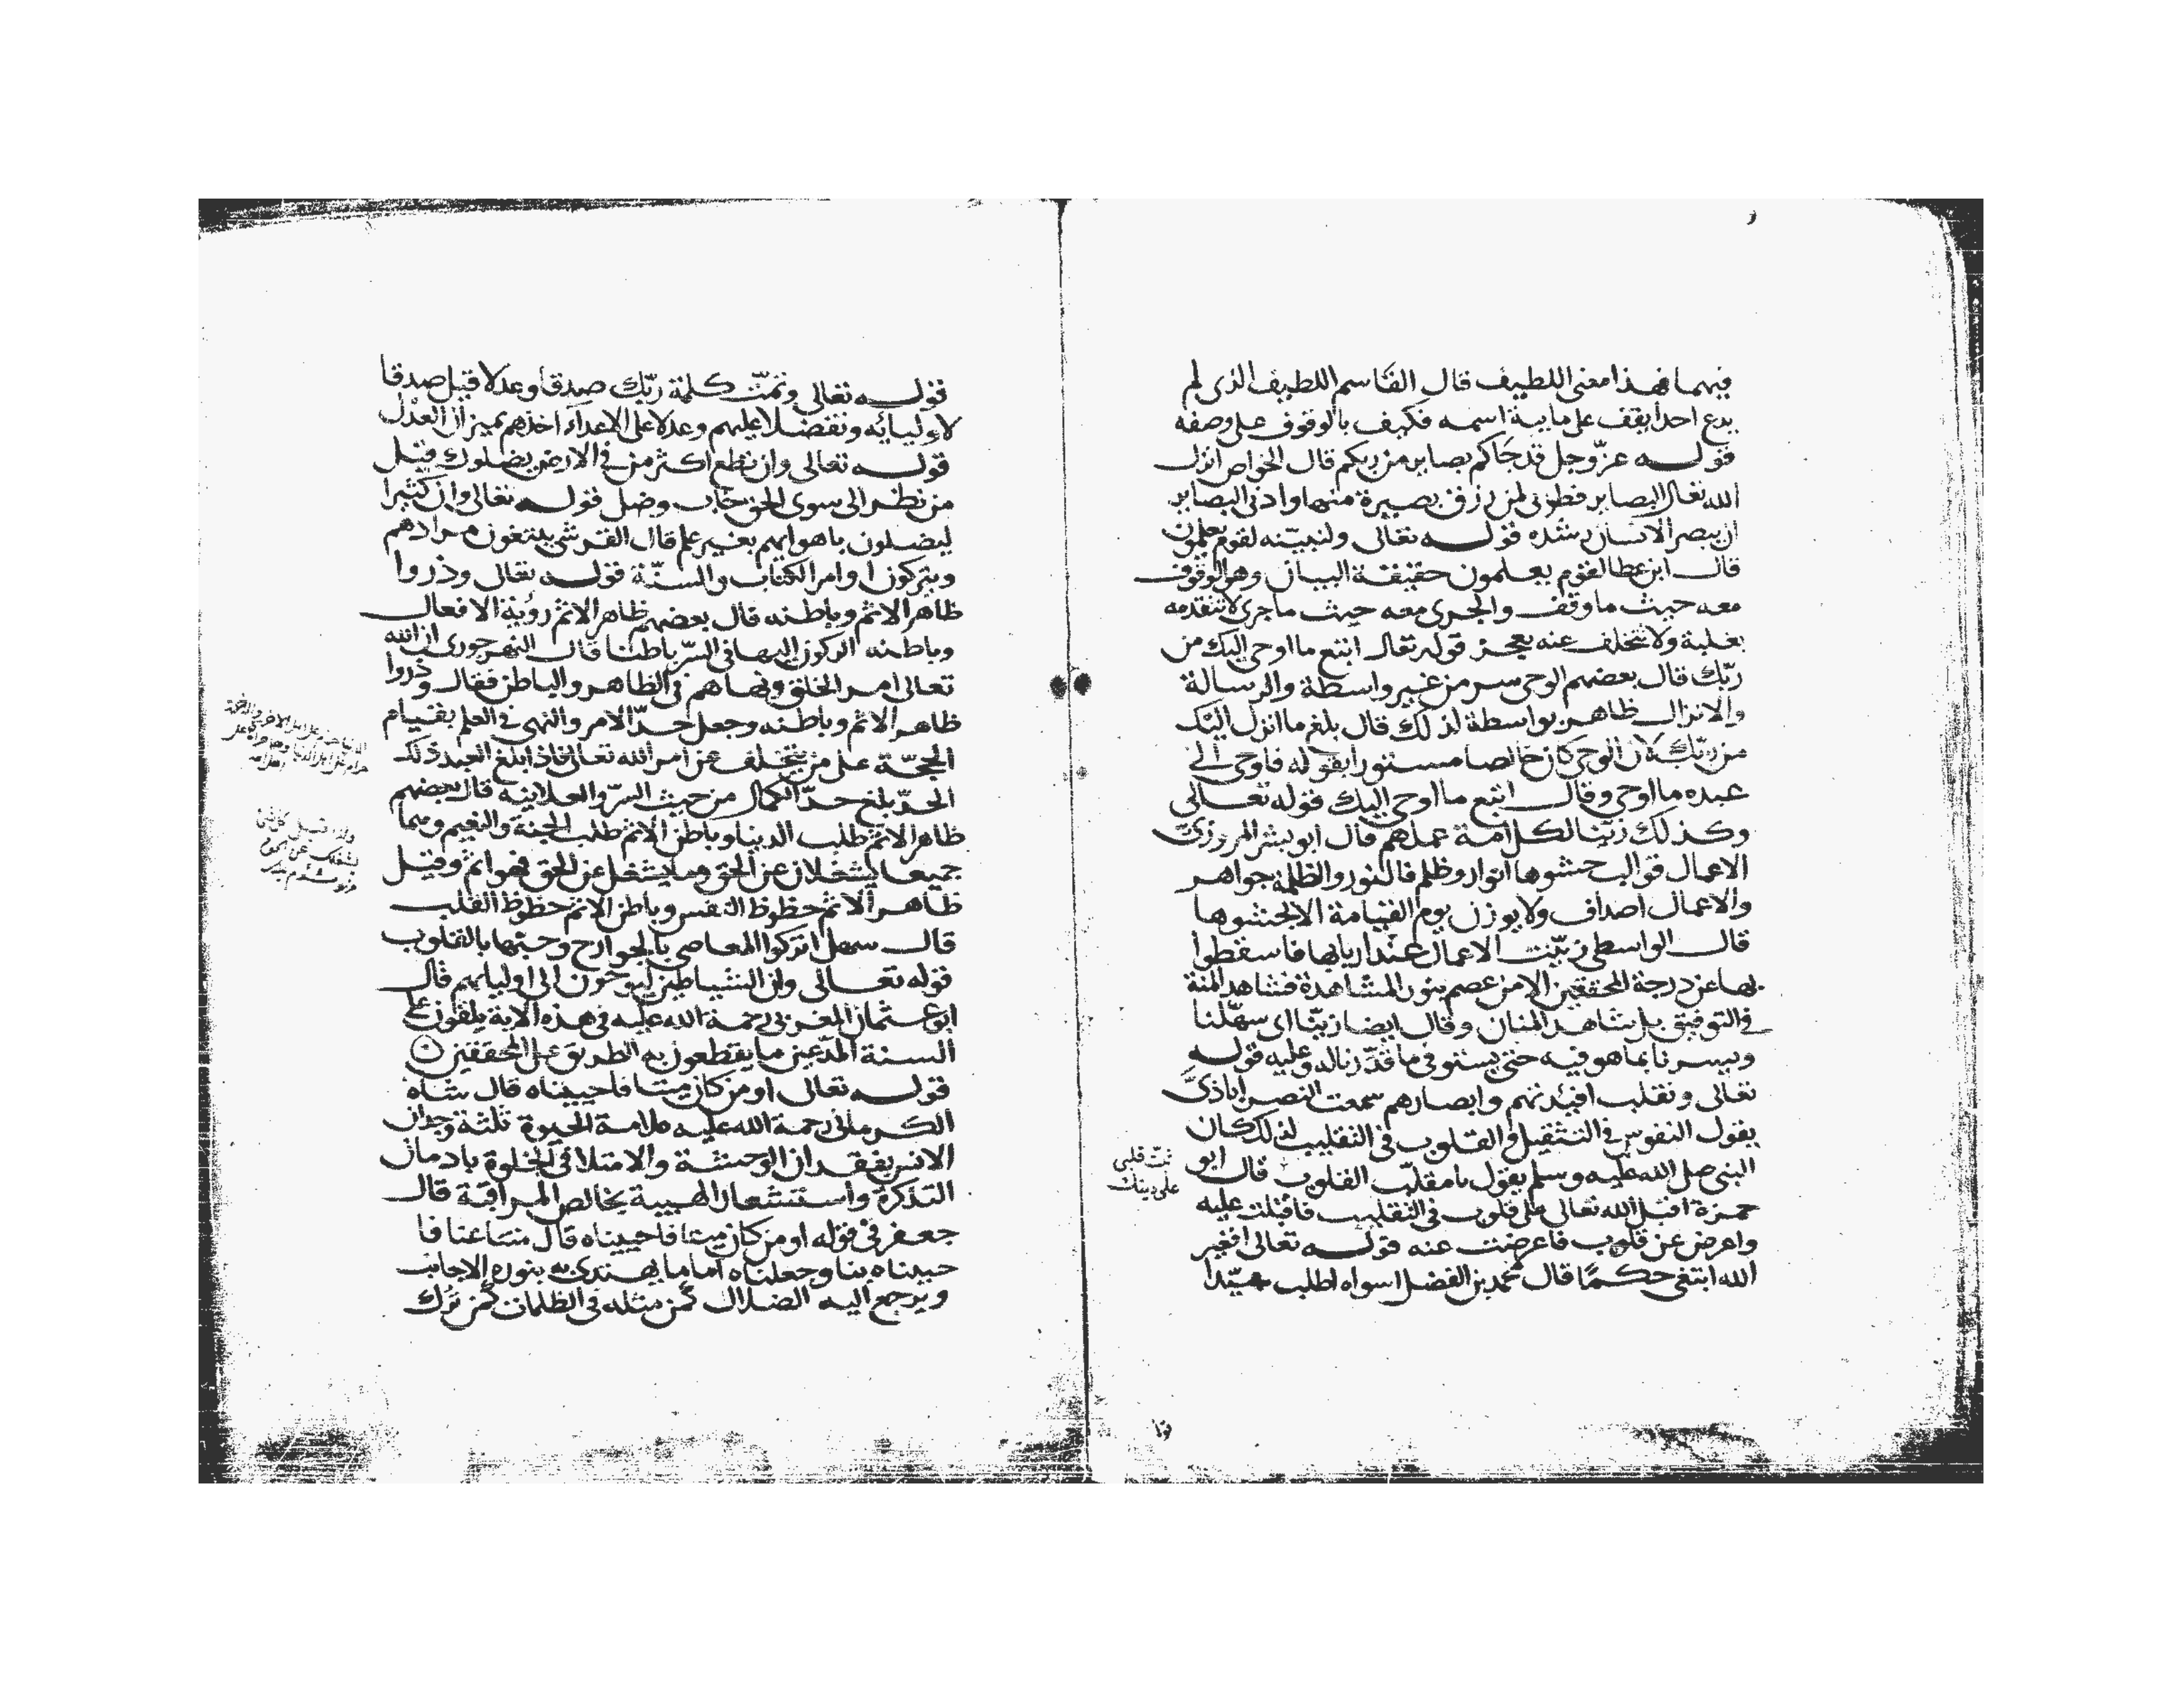 فيهما فهذا معنى اللطيف قال القاسم اللطيف الذى لم
يدع احدا يقف على ماهية اسمه فكيف بالوقوف على وصفه
قوله عزّ وجل قد جاكم بصاير من ربكم قال الخواص انزل
الله تعالى البصاير فطوبى لمن رزق بصيرة منها وادنى البصاير
ان يبصر الانسان رشده قوله تعالى ولنبيّنه لقوم يعلمون
قال ابن عطا لقوم يعلمون حقيقة البيان وهو الوقوف
معه حيث ما وقف والجرى معه حيث ما جرى لا يتقدمه
بغلبة ولا يتخلف عنه بعجز قوله تعالى اتبع ما اوحى اليك من
ربّك قال بعضهم الوحى سر من غير واسطة والرسالة
والانزال ظاهر بواسطة لذلك قال بلغ ما انزل اليك
من ربّك لان الوحى كان خالصا مستورا بقوله فاوحى الى
عبده ما اوحى وقال اتبع ما اوحى اليك قوله تعالى
وكذلك زيّنا لكل امة عملهم قال ابو بشر المروزىّ
الاعمال قوالب حشوها انوار وظلم فالنور والظلمة جواهر
والاعمال اصداف ولا يوزن يوم القيامة الا بحشوها
قال الواسطى زيّنت الاعمال عند اربابها فاسقطوا
بها عن درجة المحققين الا من عصم بنور المشاهدة فشاهد المنة
فى التوفيق بل شاهد المنان وقال ايضا زيّنا اى سهّلنا
ويسرنا بما هو فيه حتى يستوفى ما قدّرنا له وعليه قوله
تعالى ونقلب افئدتهم وابصارهم سمعت النصراباذىّ
يقول النفوس فى التثقيل والقلوب فى التقليب لذلك كان
النبى صلى الله عليه وسلم يقول يا مقلّب القلوب قال ابو
ثبّت قلبى
على دينك
حمزة اقبل الله تعالى على قلوب فى التقليب فاقبلت عليه
واعرض عن قلوب فاعرضت عنه قوله تعالى افغير
الله ابتغى حكمًا قال محمد بن الفضل اسواه اطلب سيّدا
قوله تعالى وتمّت كلمة ربّك صدقا وعدلا قيل صدقا
لاوليائه وتفضلا عليهم وعدلا على الاعداء اخذهم بميزان العدل
قوله تعالى وان تطع اكثر من فى الارض يضلوك قيل
من نظر الى سوى الحق خاب وضل قوله تعالى وان كثيرا
ليضلون باهوايهم بغير علم قال القرشى يبتغون مرادهم
ويتركون اوامر الكتاب والسنّة قوله تعالى وذروا
ظاهر الاثم وباطنه قال بعضهم ظاهر الاثم رؤية الافعال
وباطنه الركون اليها فى السرّ باطنا قال النهرجورى ان الله
تعالى امر الخلق ونهاهم فى الظاهر والباطن فقال وذروا
ظاهر الاثم وباطنه وجعل حدّ الامر والنهى فى العلم بقيام
الحجّة على من يتخلف عن امر الله تعالى فاذا بلغ العبد ذلك
الحدّ بلغ حدّ الكمال من حيث السرّ والعلانية قال بعضهم
ظاهر الاثم طلب الدنيا وباطن الاثم طلب الجنة والنعيم وهما
جميعا يشغلان عن الحق وما يشغل عن الحق فهو اثم وقيل
ظاهر الاثم حظوظ النفس وباطن الاثم حظوظ القلب
قال سهل اتركوا المعاصى بالجوارح وحبّها بالقلوب
قوله تعالى وان الشياطين ليوحون الى اوليايهم قال
ابو عثمان المغربى رحمة الله عليه فى هذه الاية يلقون على
السنة المدّعين ما يقطعون به الطريق على المحققين
قوله تعالى او من كان ميتا فاحييناه قال شاه
الكرمانى رحمة الله عليه علامة الحيوة ثلثة وجدان
الانس بفقدان الوحشة والامتلا فى الخلوة بادمان
التذكرة واستشعار الهيبة بخالص المراقبة قال
جعفر فى قوله او من كان ميتا فاحييناه قال ميتا عنا فا
حييناه بنا وجعلناه اماما يهتدى به بنوره الاجانب
ويرجع اليه الضلال كمن مثله فى الظلمات كمن ترك